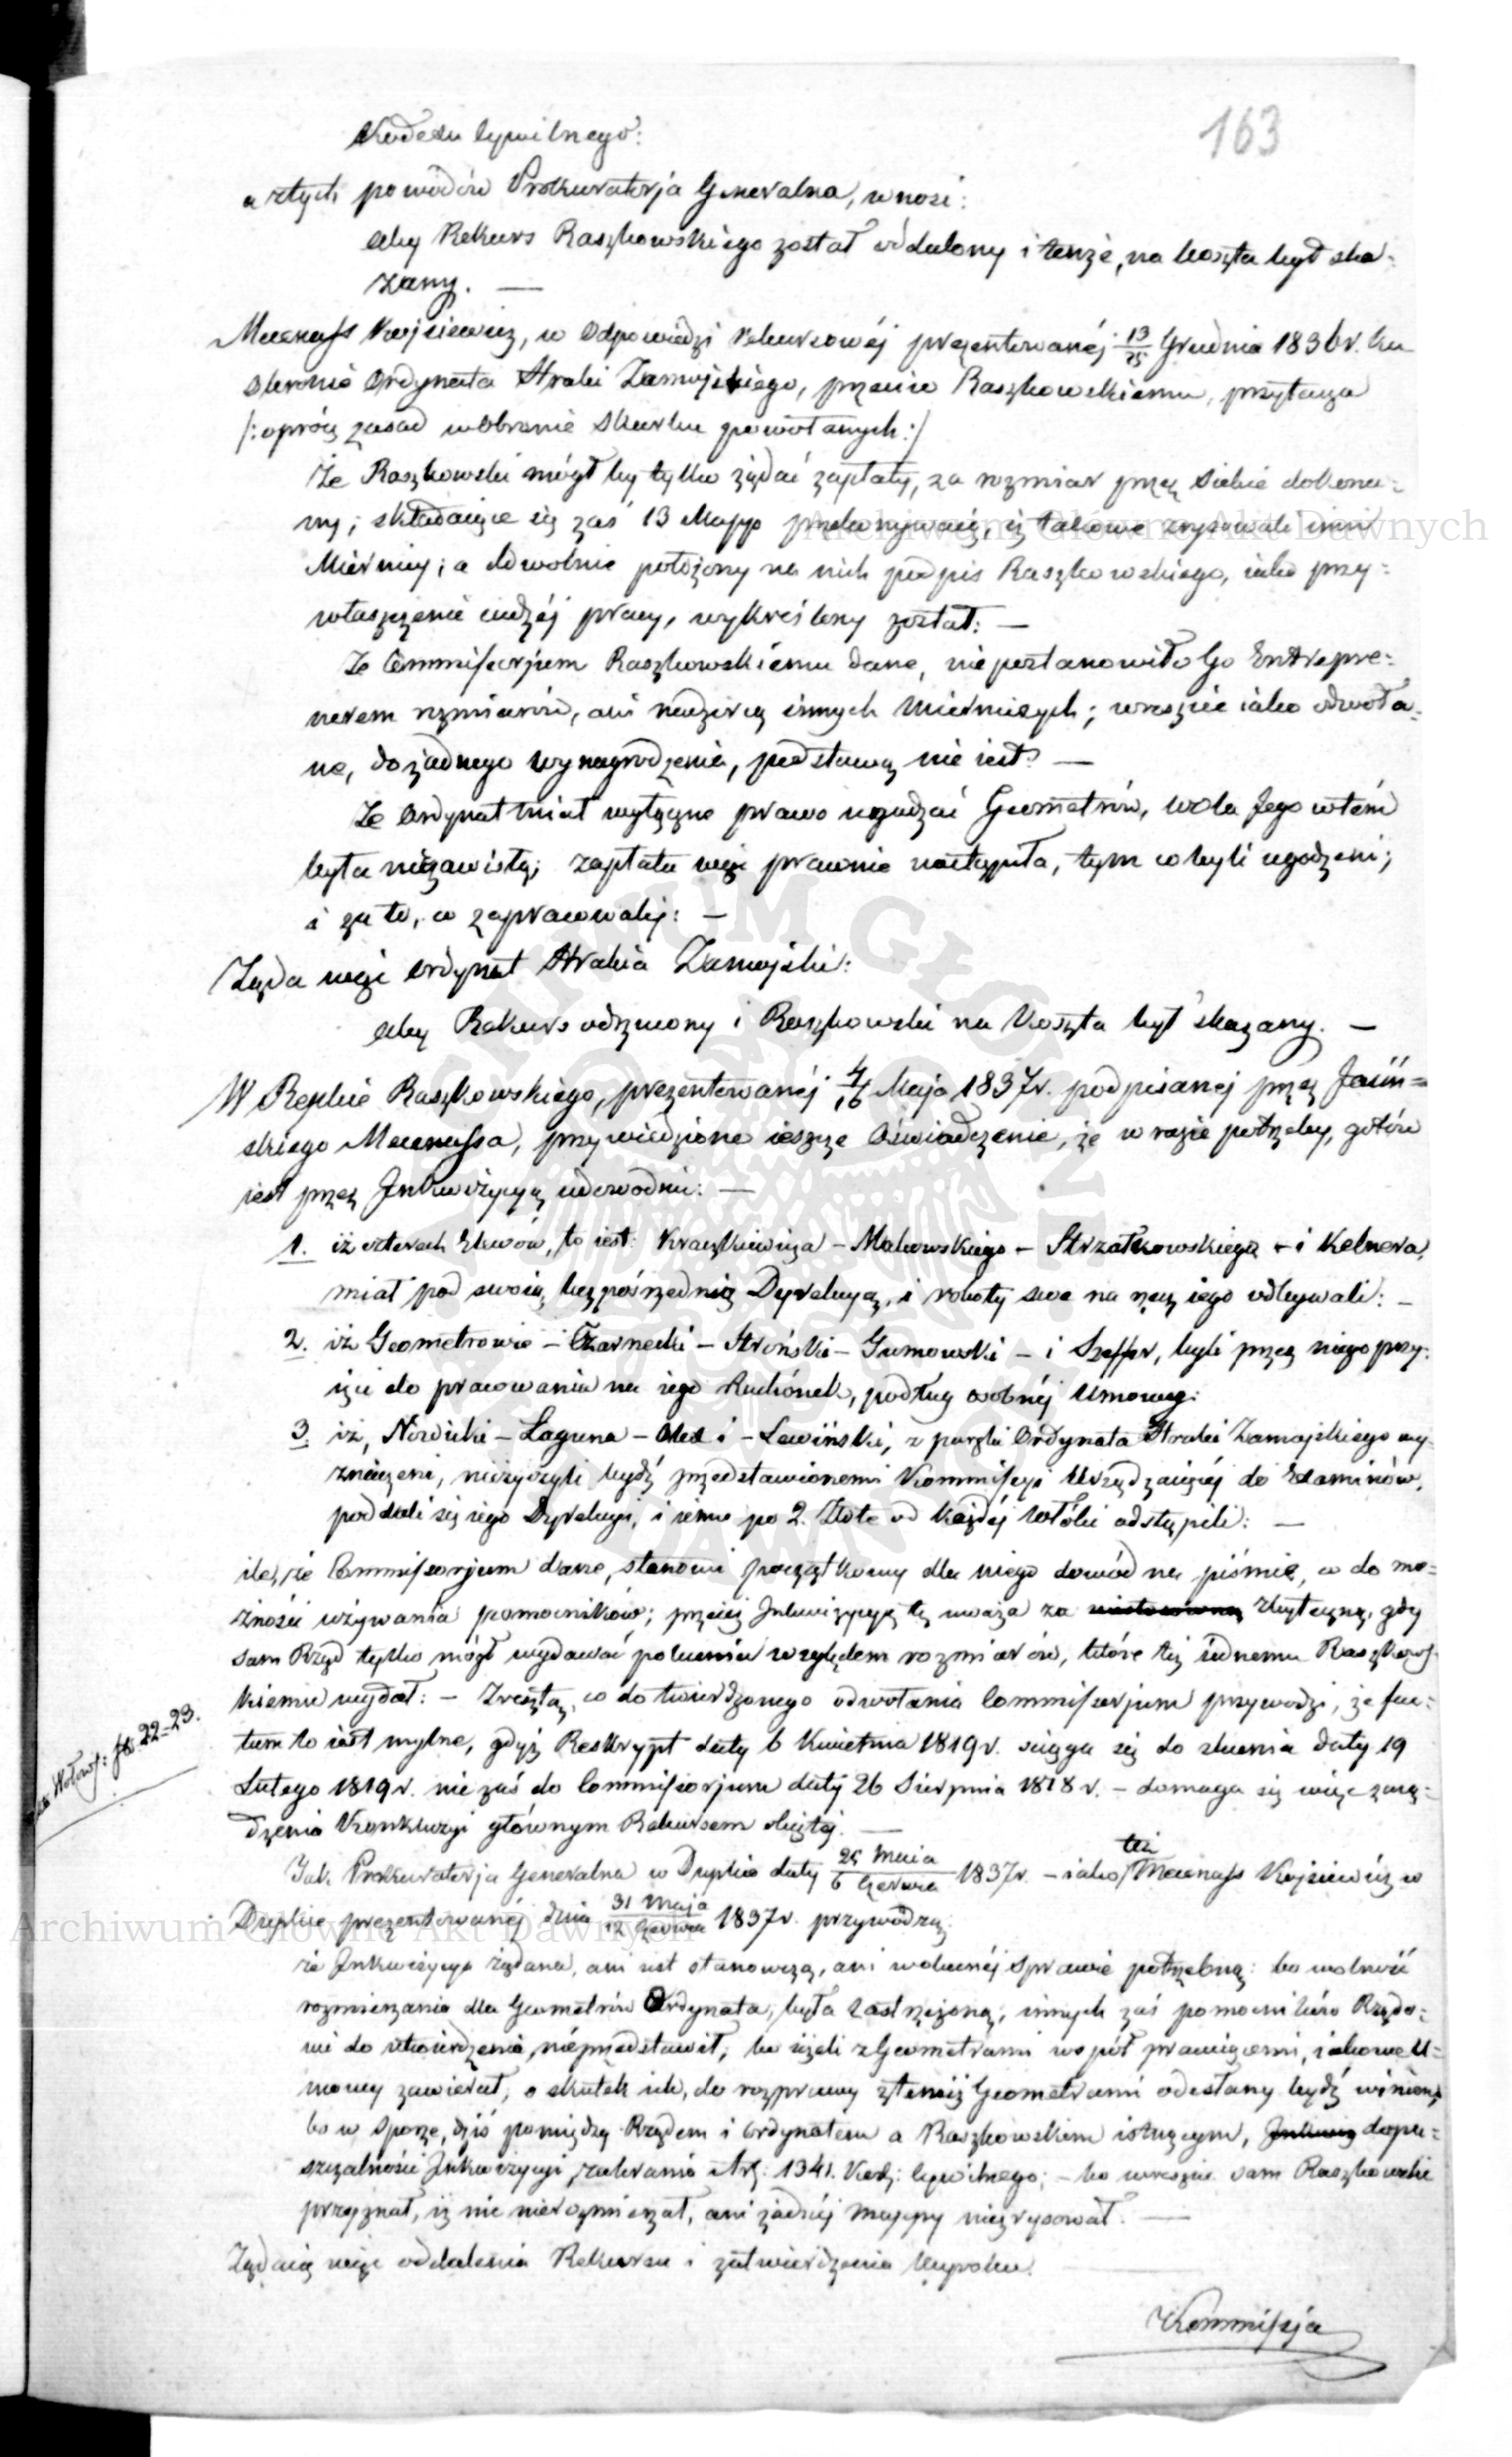 163
Kodexu Cywilnego:
a z tych powodów Prokuratorja Generalna, wnosi:
aby Rekurs Raszkowskiego został oddalony i tenże, na koszta był ska-
zany. —
Mecenass Wojciewicz, w Odpowiedzi rekursowéj prezentowanéj 13/25 Grudnia 1836 r. ku
obronie Ordynata Hrabi Zamojskiego, przeciw Raszkowskiemu, przytacza
/: oprócz zasad w obronie Skarbu powołanych :/
Że Raszkowski mógł by tylko żądać zapłaty, za rozmiar przez siebie dokona-
ny; składaiące się zaś 13 Mapp przekonywaią, iż takowe zrysowali inni
Miernicy; a dowolnie położony na nich podpis Raszkowskiego, iako przy-
właszczenie cudzéj pracy, wykreślony został: —
Że Commissorjum Raszkowskiemu dane, nie postanowiło Go Entrepre-
nerem rozmiarów, ani nadzorcą innych Mierniczych; wreszcie iako odwoła-
ne, do żadnego wynagrodzenia, podstawą nie iest: —
Że Ordynat miał wyłączne prawo ugadzać Geometrów, wola Jego w tém
była niezawisłą; zapłata więc prawnie nastąpiła, tym co byli ugodzeni;
i za to, co zapracowali: —
Żąda więc Ordynat Hrabia Zamojski:
aby Rekurs odrzucony i Raszkowski na Koszta był skazany. —
W Replice Raszkowskiego, prezentowanéj 4/16 Maja 1837 r. podpisanej przez Jasiń-
skiego Mecenassa, przywiedzione ieszcze Oświadczenie, że w razie potrzeby, gotów
iest przez Inkwizycyą udowodnić: —
1. iż czterech Elewów, to iest: Kraczkiewicza – Makowskiego – Strzałkowskiego – i Kelnera,
miał pod swoią bezpośrednią Dyrekcyą, i roboty swe na rzecz iego odbywali: –
2. iż Geometrowie – Czarnecki – Stroński – Gumowski – i Szeffer, byli przez niego przy-
ięci do pracowania na iego Rachunek, podług osobnéj Umowy:
3. iż, Nowicki – Łaguna – Oles i – Lewiński, z parzki Ordynata Hrabi Zamojskiego wy-
znaczeni, nieżyczyli bydź przedstawionemi Kommissyi Urządzaiącéj do Examinów,
poddali się iego Dyrekcyi, i iemu po 2. Złote od Każdéj Włóki odstąpili: —
ile, że Commissorjum dane, stanowi początkowy dla niego dowód na piśmie, co do mo-
żności używania pomocników; przeciéż Inkwizycyę tę uważa za zbyteczną, gdy
sam Rząd tylko mógł wydawać polecenia względem rozmiarów, które też iednemu Raszkow-
skiemu wydał: – Zresztą, co do twierdzonego odwołania Commissorjum przywodzi, że fac-
tum to iest mylne, gdyż Reskrypt daty 6 Kwietnia 1819 r. ściąga się do zlecenia daty 19
Lutego 1819 r. nie zaś do Commissorjum daty 26 Sierpnia 1818 r. – domaga się więc zarzą-
dzenia Konkluzyi głównym Rekursem obiętéj. —
Wołows: fo: 22=23.
Jak Prokuratorja Generalna w Duplice daty 25 Maia/6 Czerwca 1837 r. – iako też Mecenass Wojciewicz w
Duplice prezentowanéj dnia 31 Maja/12 Czerwca 1837 r. przywodzą:
że Inkwizycya żądana, ani iest stanowczą, ani w obecnéj Sprawie potrzebną: bo wolność
rozmierzania dla Geometrów Ordynata, była zastrzeżoną; innych zaś pomocników Rządo-
wi do utwierdzenia, nieprzedstawił; bo ieżeli z Geometrami współ pracuiącemi, iakowe U-
mowy zawierał, o skutek ich, do rozprawy z temiż Geometrami odesłany bydź winien,
bo w Sporze, dziś pomiędzy Rządem i Ordynatem a Raszkowskim istnącym, Inkwiz dopu-
szczalności Inkwizycyi, zabrania Art: 1341. Kod: Cywilnego; – bo wreszcie sam Raszkowski
przyznał, iż nic nierozmierzał, ani żadnéj Mappy niezrysował. —
Żądaią więc oddalenia Rekursu i zatwierdzenia Wyroku.
Kommissja
Archiwum Główne Akt Dawnych
Archiwum Główne Akt Dawnych